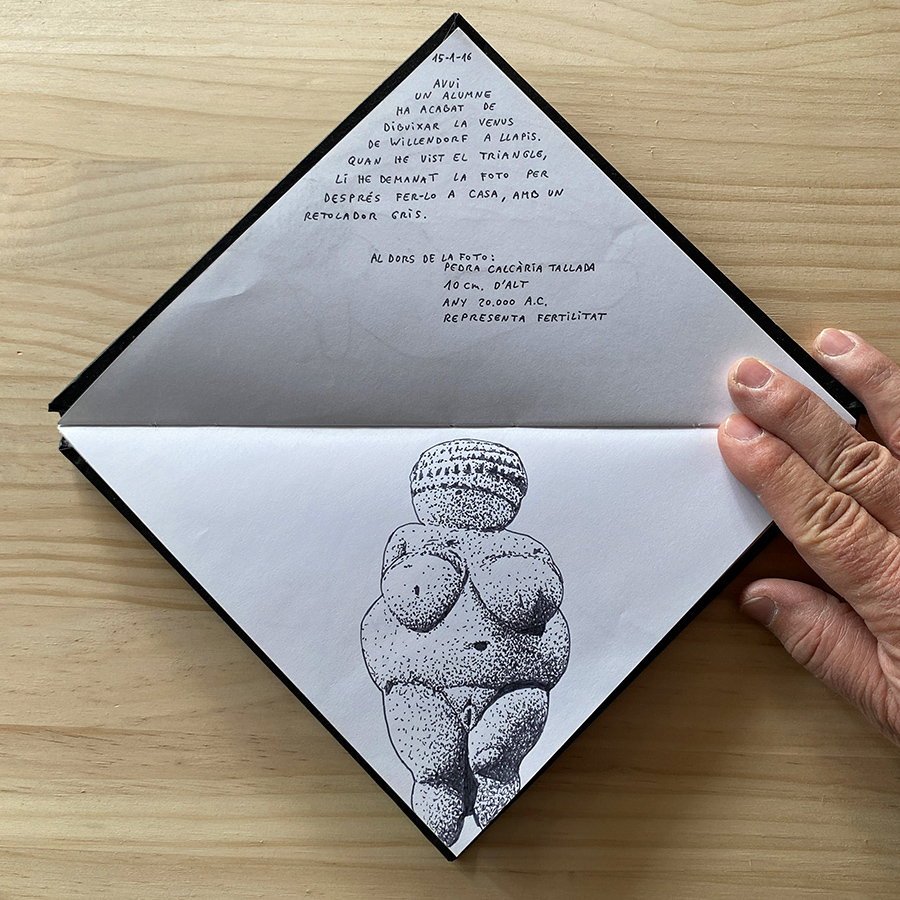 15-1-16
AVUI
UN ALUMNE
HA ACABAT DE
DIBUIXAR LA VENUS
DE WILLENDORF A LLAPIS.
QUAN HE VIST EL TRIANGLE,
LI HE DEMANAT LA FOTO PER
DESPRÉS FER-LO A CASA, AMB UN
RETOLADOR GRIS.
AL DORS DE LA FOTO:
PEDRA CALCÀRIA TALLADA
10 CM. D'ALT
ANY 20.000 A.C.
REPRESENTA FERTILITAT